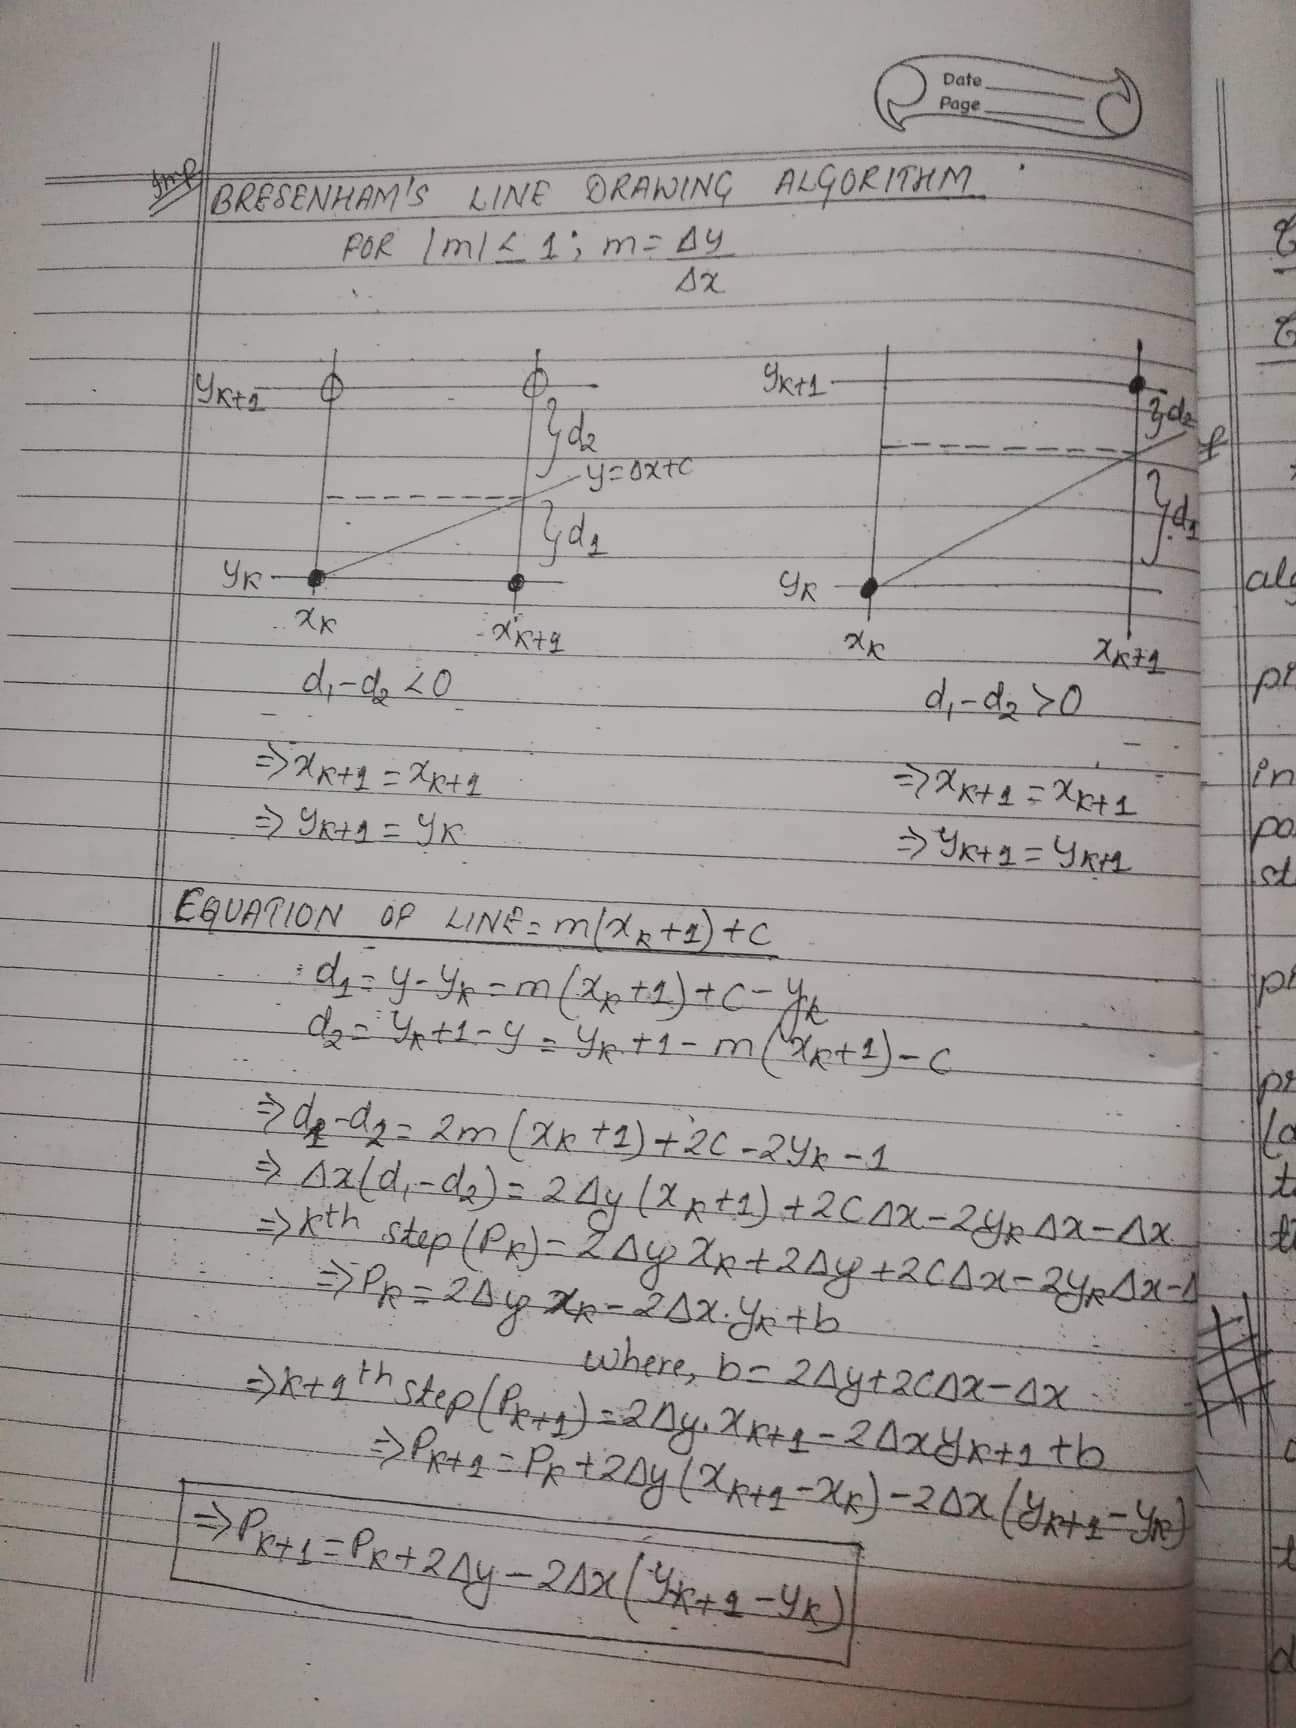 Date
Page
Imp
BRESENHAM'S LINE DRAWING ALGORITHM
FOR |m| ≤ 1; m = Δy/Δx
yₖ₊₁
d₂
y=Δx+c
d₁
yₖ
xₖ xₖ₊₁
d₁-d₂ <0
⇒ xₖ₊₁ = xₖ₊₁
⇒ yₖ₊₁ = yₖ
yₖ₊₁
d₂
d₁
yₖ
xₖ xₖ₊₁
d₁-d₂ >0
⇒ xₖ₊₁ = xₖ₊₁
⇒ yₖ₊₁ = yₖ₊₁
EQUATION OF LINE = m(xₖ+1)+c
d₁ = y-yₖ = m(xₖ+1)+c-yₖ
d₂ = yₖ+1-y = yₖ+1-m(xₖ+1)-c
⇒ d₁-d₂ = 2m(xₖ+1)+2c-2yₖ-1
⇒ Δx(d₁-d₂) = 2Δy(xₖ+1)+2cΔx-2yₖΔx-Δx
⇒ kᵗʰ step(Pₖ) = 2Δy xₖ+2Δy+2cΔx-2yₖΔx-Δ
⇒ Pₖ = 2Δy xₖ-2Δx.yₖ+b
where, b = 2Δy+2cΔx-Δx
⇒ k+1ᵗʰ step(Pₖ₊₁) = 2Δy.xₖ₊₁-2Δxyₖ₊₁+b
⇒ Pₖ₊₁ = Pₖ+2Δy(xₖ₊₁-xₖ)-2Δx(yₖ₊₁-yₖ)
⇒ Pₖ₊₁ = Pₖ+2Δy-2Δx(yₖ₊₁-yₖ)